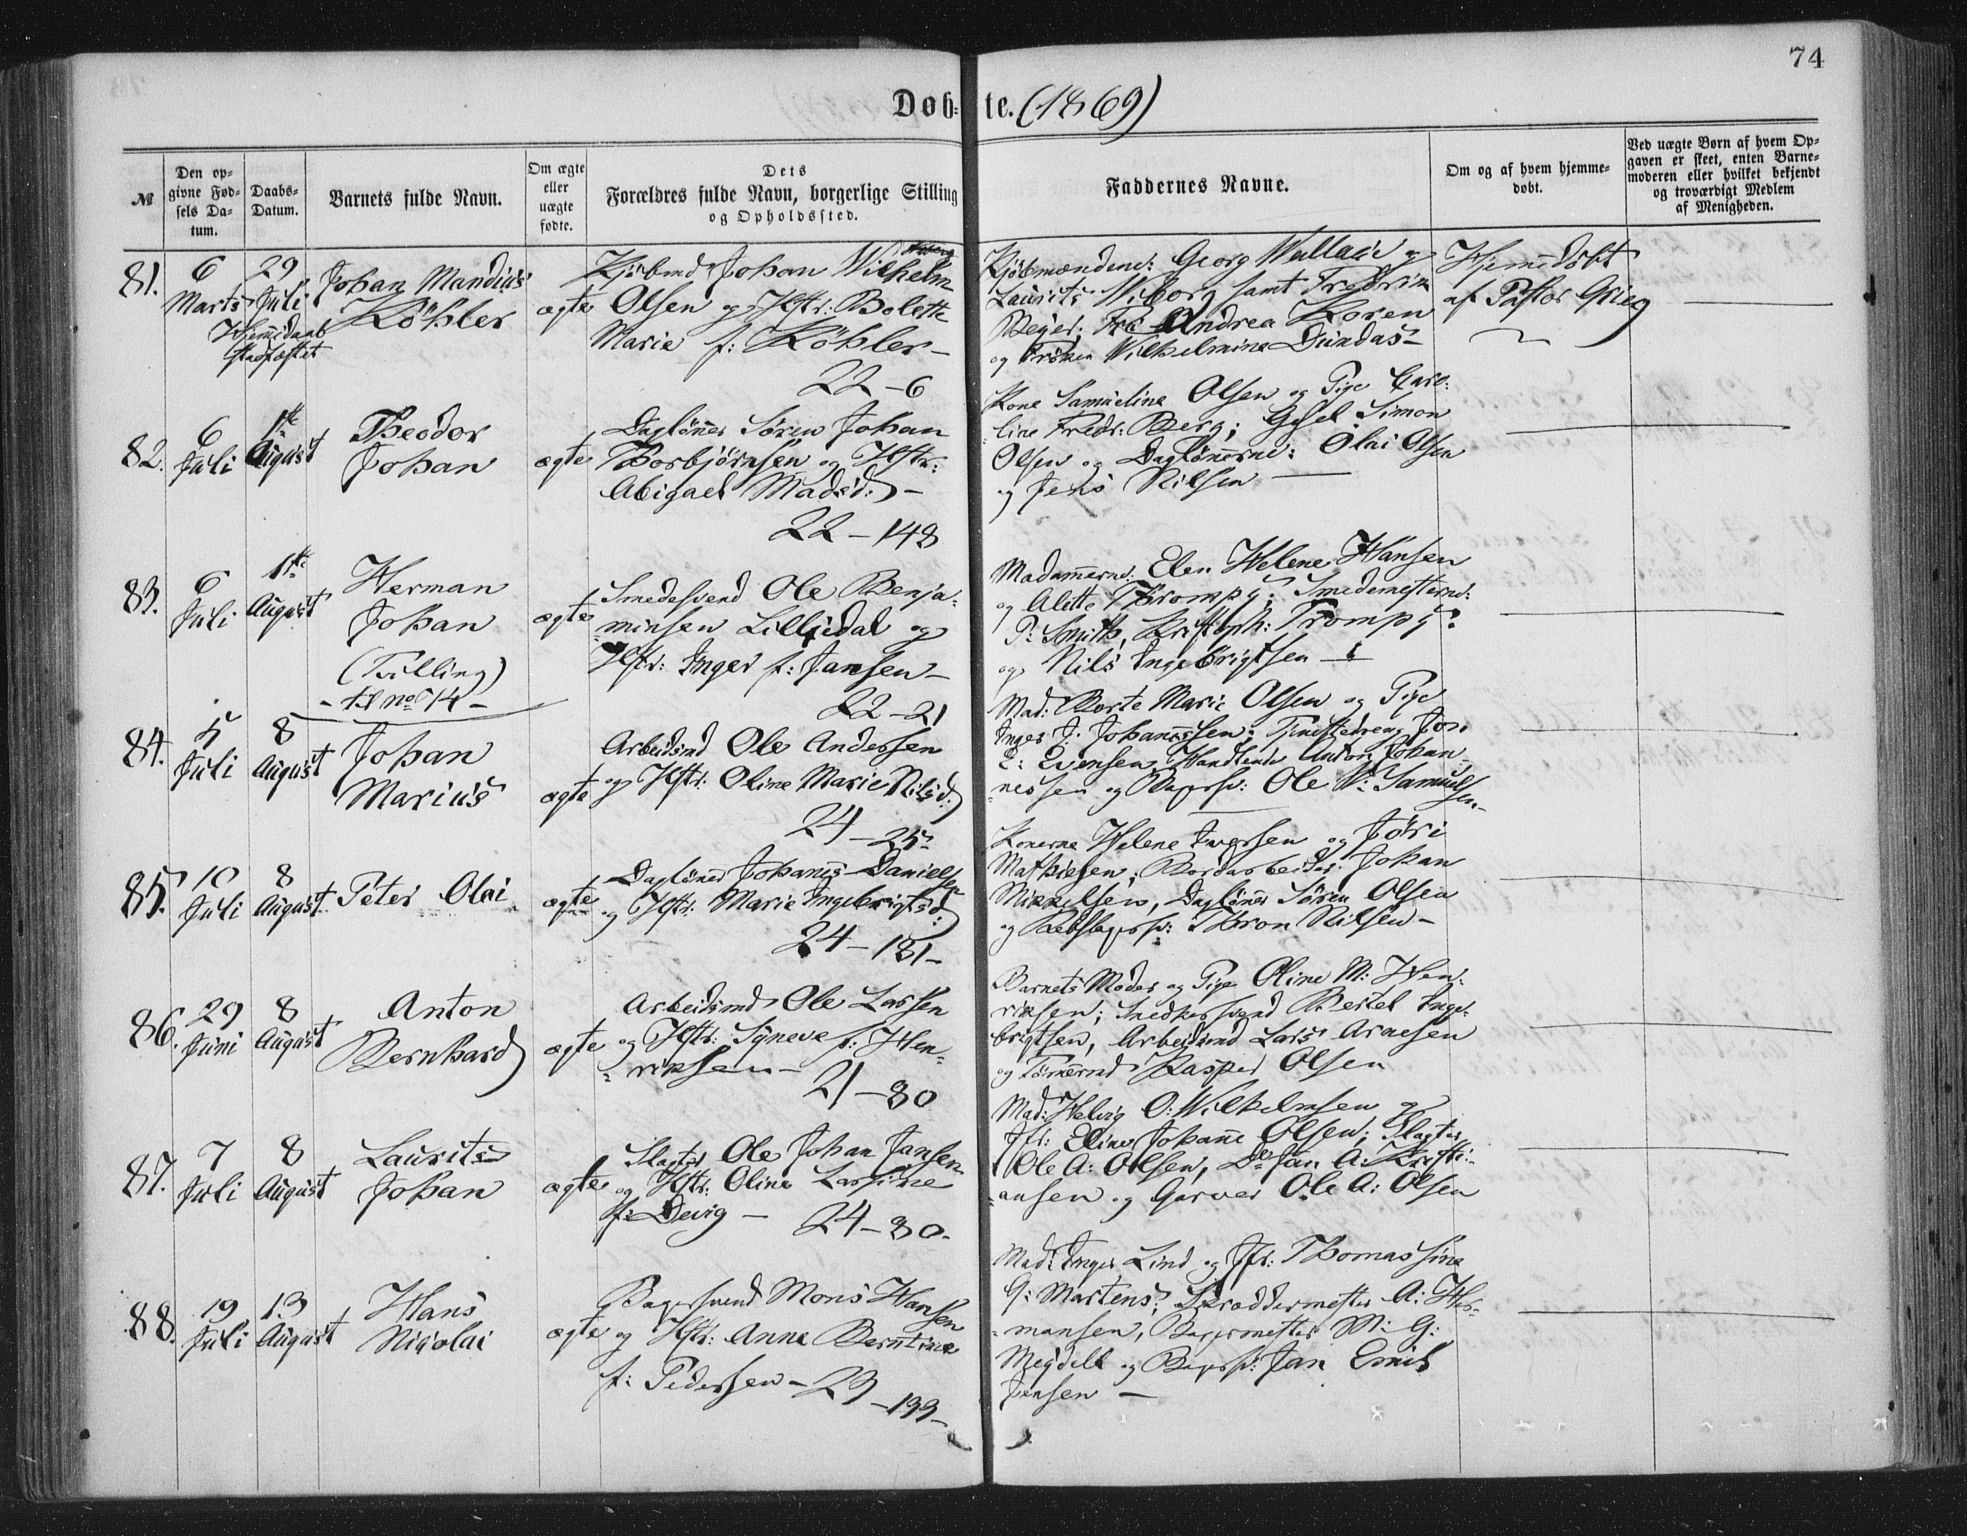 74
Døb- te. (1869)
№
Den opgivne Fødsels Datum.
Daabs-Datum.
Barnets fulde Navn.
Om ægte eller uægte fødte.
Dets
Forældres fulde Navn, borgerlige Stilling
og Opholdssted.
Faddernes Navne.
Om og af hvem hjemmedøbt.
Ved uægte Børn af hvem Opgaven er skeet, enten Barnemoderen eller hvilket bekjendt og troværdigt Medlem af Menigheden.
81.
6 Marts
29 Juli
Hjemedaab
stadfæstet
Johan Mandius
Köhler
ægte
Kjöbmd: Johan Vilhelm
Olsen og Hstr: Bolette
Marie f: Köhler –
22–6
Kjöbmændene: Georg Wallace og
Laurits Wiborg samt Fredrik
Beyer; Fru Andrea Koren
og Frøken Vilhelmine Dundas –
Hjemedøbt
af Pastor Grieg
82.
6 Juli
1ste August
Theodor
Johan
ægte
Daglönner Sören Johan
Thorbjörnsen og Hstr:
Abigael Madsd: –
22–148
Kone Samueline Olsen og Pige Caro-
line Fredr: Berg; Gesel Simon
Olsen og Daglönnerne: Olai Olsen
og Jens Nilsen –
83.
6 Juli
1ste August
Herman
Johan
(Tvilling)
– til no 14 –
ægte
Smedesvend Ole Benja-
minsen Lilledal og
Hstr: Inger f: Jansen –
22–21
Madamerne: Elen Helene Hansen
og Alette Thrompy; Smedemesterne:
P: Smith, Kristoph: Trompy
og Nils Ingebrigtsen –
84.
5 Juli
8 August
Johan
Marius
ægte
Arbeidsmd Ole Andersen
og Hstr: Oline Marie Nilsd:
24–25
Mad: Berte Marie Olsen og Pige
Inger J: Johannessen; Tjenestedreng Jon
E: Evensen, Handlende Anton Johan-
nessen og Bagersv: Ole N: Samuelsen –
85.
10 Juli
8 August
Peter Olai
ægte
Daglönner Johannes Danielsen
og Hstr: Marie Ingebrigtsd:
24–181–
Konerne Helene Iversen og Jøri
Mathiesen; Bordarbeider Johan
Mikkelsen, Daglönner Sören Olsen
og Rebslagersv: Thron Nilsen –
86.
29 Juni
8 August
Anton
Bernhard
ægte
Arbeidsmd Ole Larsen
og Hstr: Synneve f: Hen-
riksen –
21–80
Barnets Moder og Pige Oline M: Hen-
riksen; Snedkersvend Bertel Inge-
brigtsen, Arbeidsmd Lars Arnesen
og Tømmermd Kasper Olsen
87.
7 Juli
8 August
Laurits
Johan
ægte
Slagter Ole Johan Jansen
og Hstr: Oline Larsine
f: Devig –
24–80.
Mad: Helvig O: Vilhelmsen og
Jfr: Eline Johanne Olsen; Slagter
Ole A: Olsen, Do Jan A: Kristi-
ansen og Garver Ole A: Olsen
88.
19 Juli
13 August
Hans
Nicolai
ægte
Bagersvend Mons Hansen
og Hstr: Anne Berntine
f: Pedersen –
23–199–
Mad: Inger Lind og Jfr: Thomassine
G: Martens; Skræddermester A: Her-
mansen, Bagermester M: G:
Megdell og Bagersv: Jan Emil
Jensen –